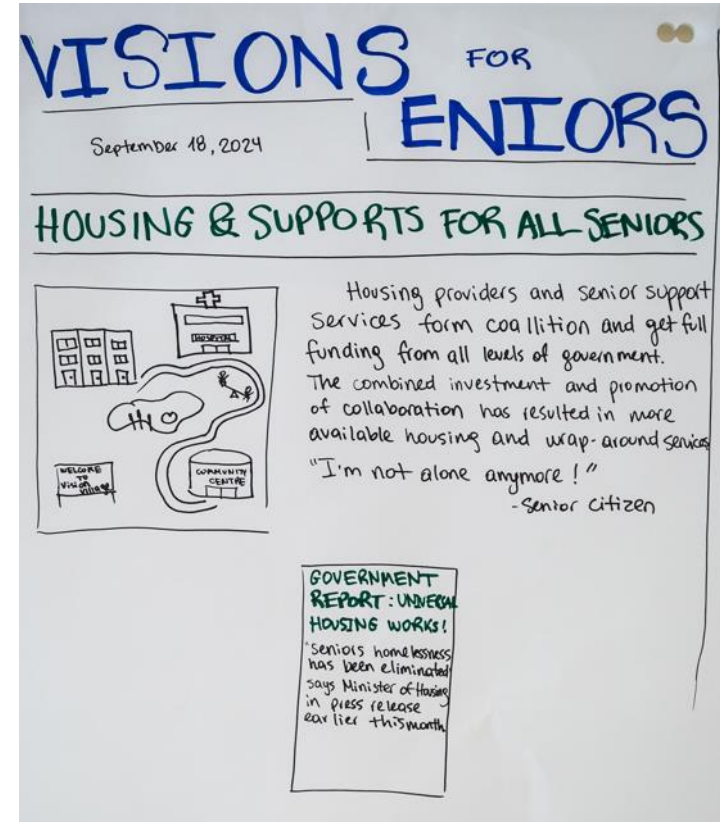 VISIONS FOR
SENIORS
September 18, 2024
HOUSING & SUPPORTS FOR ALL SENIORS
HOSPITAL
WELCOME
TO
Vision
Village
COMMUNITY
CENTRE
Housing providers and senior support
Services form coallition and get full
funding from all levels of government.
The combined investment and promotion
of collaboration has resulted in more
available housing and wrap-around services
"I'm not alone anymore!"
-Senior Citizen
GOVERNMENT
REPORT: UNIVERSAL
HOUSING WORKS!
"Seniors homelessness
has been eliminated
says Minister of Housing
in press release
earlier this month